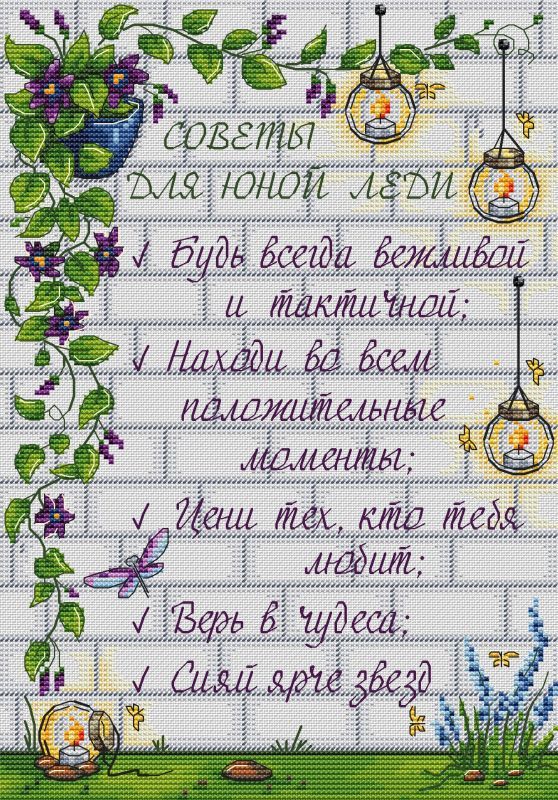 СОВЕТЫ
ДЛЯ ЮНОЙ ЛЕДИ
✓ Будь всегда вежливой
и тактичной;
✓ Находи во всем
положительные
моменты;
✓ Цени тех, кто тебя
любит;
✓ Верь в чудеса;
✓ Сияй ярче звезд